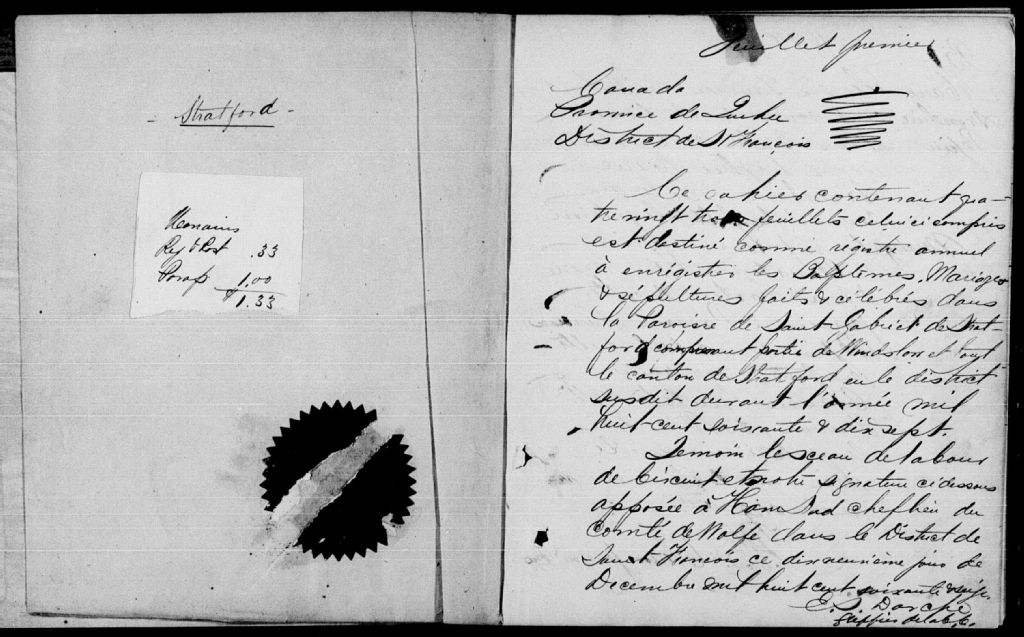 - Stratford -
Reg & Post .33
Paraf 1.00
1.33
feuillet premier
Canada
Province de Québec
District de St François
Ce cahier contenant qua-
tre vingt feuillets celui ci compris
est destiné comme régistre annuel
à enrégistrer les Baptemes, Mariages
& sépultures faits & célébrés dans
la Paroisse de Saint Gabriel de Strat-
ford comprenant partie de Winslow et tout
le canton de Stratford en le district
susdit durant l'année mil
huit cent soixante & dix sept.
Temoin le sceau de la Cour
de Circuit et notre signature ci dessous
apposée à Ham Sud chef lieu du
Comté de Wolfe dans le District de
Saint François ce dixneuvième jour de
Decembre mil huit cent soixante &
Greffier de la C.C.